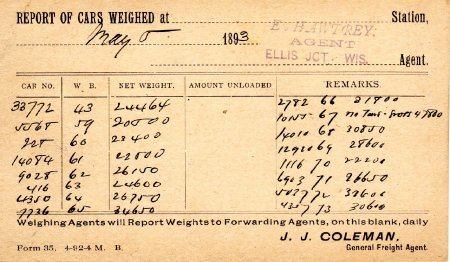 REPORT OF CARS WEIGHED at Station,
May 5 1893
E. HAWTREY,
AGENT
ELLIS JCT. WIS.
Agent.
CAR NO. W. B. NET WEIGHT. AMOUNT UNLOADED REMARKS.
33772 43 24464 2782 66 21800
5568 59 20500 10155 67 no Tare - Gross 47800
225 60 23400 14010 68 30850
14084 61 22500 12920 69 28600
9028 62 26150 1116 70 22200
416 63 24600 6903 71 26650
4350 64 26750 72 32600
7736 65 34650 4327 73 30600
Weighing Agents will Report Weights to Forwarding Agents, on this blank, daily
J. J. COLEMAN,
Form 35. 4-92-4 M. B. General Freight Agent.